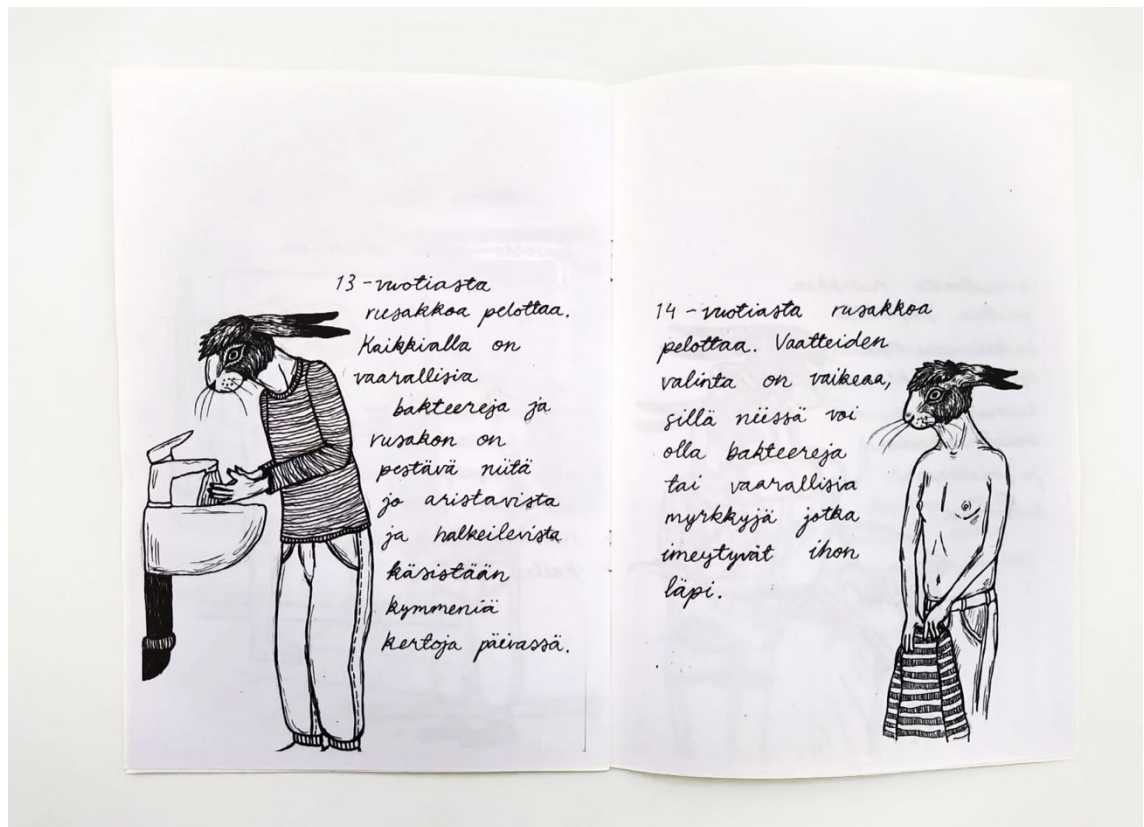 13-vuotiasta
rusakkoa pelottaa.
Kaikkialla on
vaarallisia
bakteereja ja
rusakon on
pestävä niitä
jo aristavista
ja halkeilevista
käsistään
kymmeniä
kertoja päivässä.
14-vuotiasta rusakkoa
pelottaa. Vaatteiden
valinta on vaikeaa,
sillä niissä voi
olla bakteereja
tai vaarallisia
myrkkyjä jotka
imeytyvät ihon
läpi.